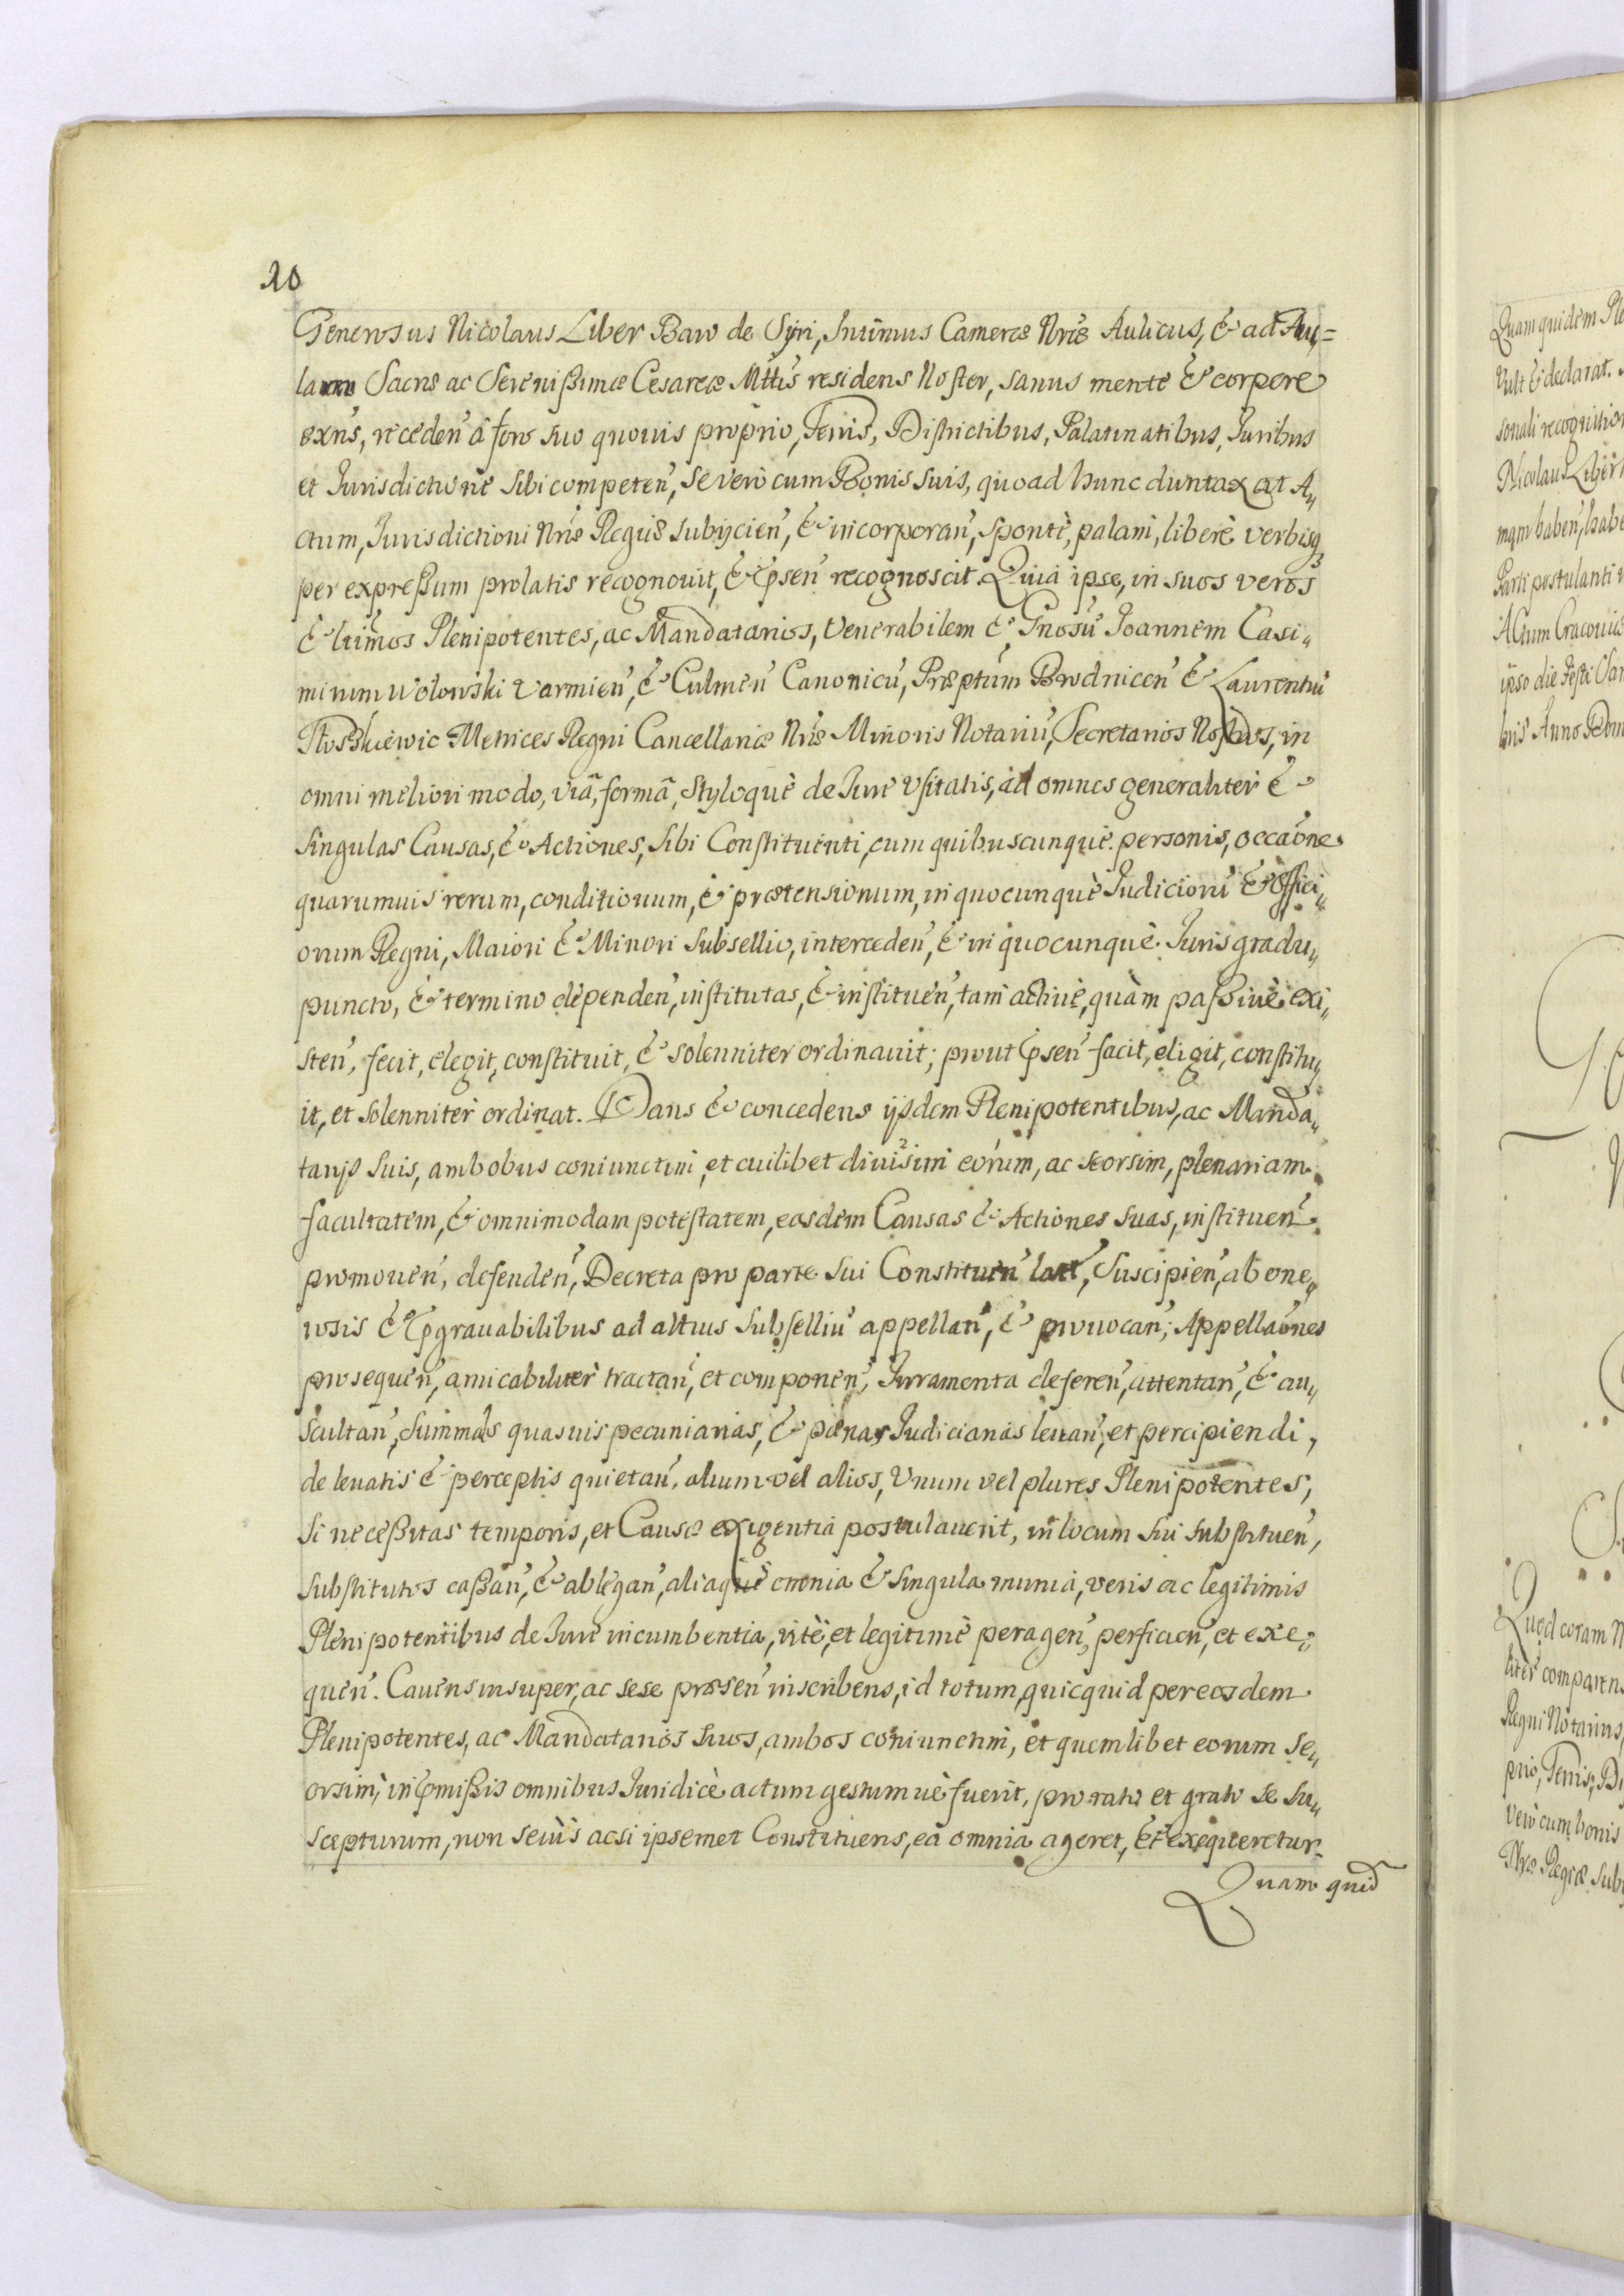 10
Generosus Nicolaus Liber Baro de Syri, Intimus Cameræ Nræ Aulicus, & ad Au=
lam Sacræ ac Serenißimæ Cesareæ Mttis residens Noster, sanus mente & corpere
exns, receden à foro suo quovis proprio, Terris, Districtibus, Palatinatibus, Juribus
et Jurisdictione sibi competen, se verò cum Bonis suis, quoad hunc duntaxat A„
ctum, Jurisdictioni Nræ Regiæ subijcien, & incorporan, sponte, palam, liberè verbisq3
per expreßum prolatis recognouit, & psen recognoscit Quia ipse, in suos veros
& ltimos Plenipotentes, ac Mandatarios, Venerabilem & Gnosu Joannem Casi„
mirum Wolowski Varmien, & Culmen Canonicu, Præptum Brodnicen & Laurentiu
Metrices Regni Cancellariæ Nræ Minoris Notariu, Secretarios Nostros, in
omni meliori modo, viâ, formâ, Styloquè de Jure vsitatis, ad omnes generaliter &
singulas Causas, & Actiones, sibi Constituenti, cum quibuscunquè personis, occaone
quarumuis rerum, conditionum, & prætensionum, in quocunquè Judicioru & Offici„
orum Regni, Maiori & Minori Subsellio, interceden, & in quocunquè Juris gradu„
puncto, & termino dependen, institutas, & instituen, tam activè, quàm paßivè exi„
sten, fecit, elegit, constituit, & solenniter ordinauit; prout psen facit, eligit, constitu„
it, et solenniter ordinat. Dans & concedens ijsdem Plenipotentibus, ac Manda„
tarijs suis, ambobus coniunctim, et cuilibet diuisim eorum, ac seorsim, plenariam
facultatem, & omnimodam potestatem, easdem Causas & Actiones suas, instituen
promouen, defenden, Decreta pro parte sui Constituen lata, Suscipien, ab one„
rosis & pgrauabilibus ad altius Subselliu appellan, & prouocan; Appellaones
prosequen, amicabiliter tractan, et componen, Jurramenta deferen, attentan, & au„
scultan, Summas quasuis pecuniarias, & pœnas Judiciarias leuan, et percipiendi,
de leuatis & perceptis quietan. alium vel alios, Vnum vel plures Plenipotentes,
si neceßitas temporis, et Causæ exigentia postulauerit, in locum sui substituen,
substitutos caßan, & ablegan, aliaquè omnia & singula munia, veris ac legitimis
Plenipotentibus de Jure incumbentia, ritè, et legitimè peragen, perficien, et exe„
quen. Cauens insuper, ac sese præsen inscribens, id totum, quicquid per eosdem
Plenipotentes, ac Mandatarios suos, ambos coniunctim, et quemlibet eorum se„
orsim, in pmißis omnibus Juridicè actum gestumuè fuerit, pro rato et grato se su„
scepturum, non seciùs acsi ipsemet Constituens, ea omnia ageret, & exequeretur.
Quam quid
Quam quidem Ple
Vult & declarat.
sonali recognition
Nicolaus Liber
mqm haben, habe
Parti postulanti
Actum Cracouiæ
ipso die Festi
bris Anno Dom
Quod coram N
liter comparens
Regni Notarius,
prio, Terris, Di
verò cum bonis
Nræ Regiæ sub